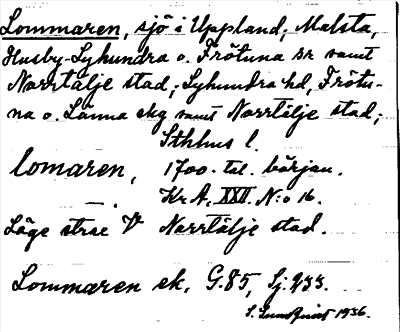 Lommaren, sjö i Uppland; Malsta,
Husby-Lyhundra o. Frötuna sr samt
Norrtälje stad; Lyhundra hd, Frötu-
na o. Länna skg samt Norrtälje stad;
Sthlms l.
lomaren, 1700-tal. början.
—. Kr A, XXII. N:o 16.
Läge strax V Norrtälje stad.
Lommaren ek. G.85, Sj:233.
S. Sundqvist 1936.